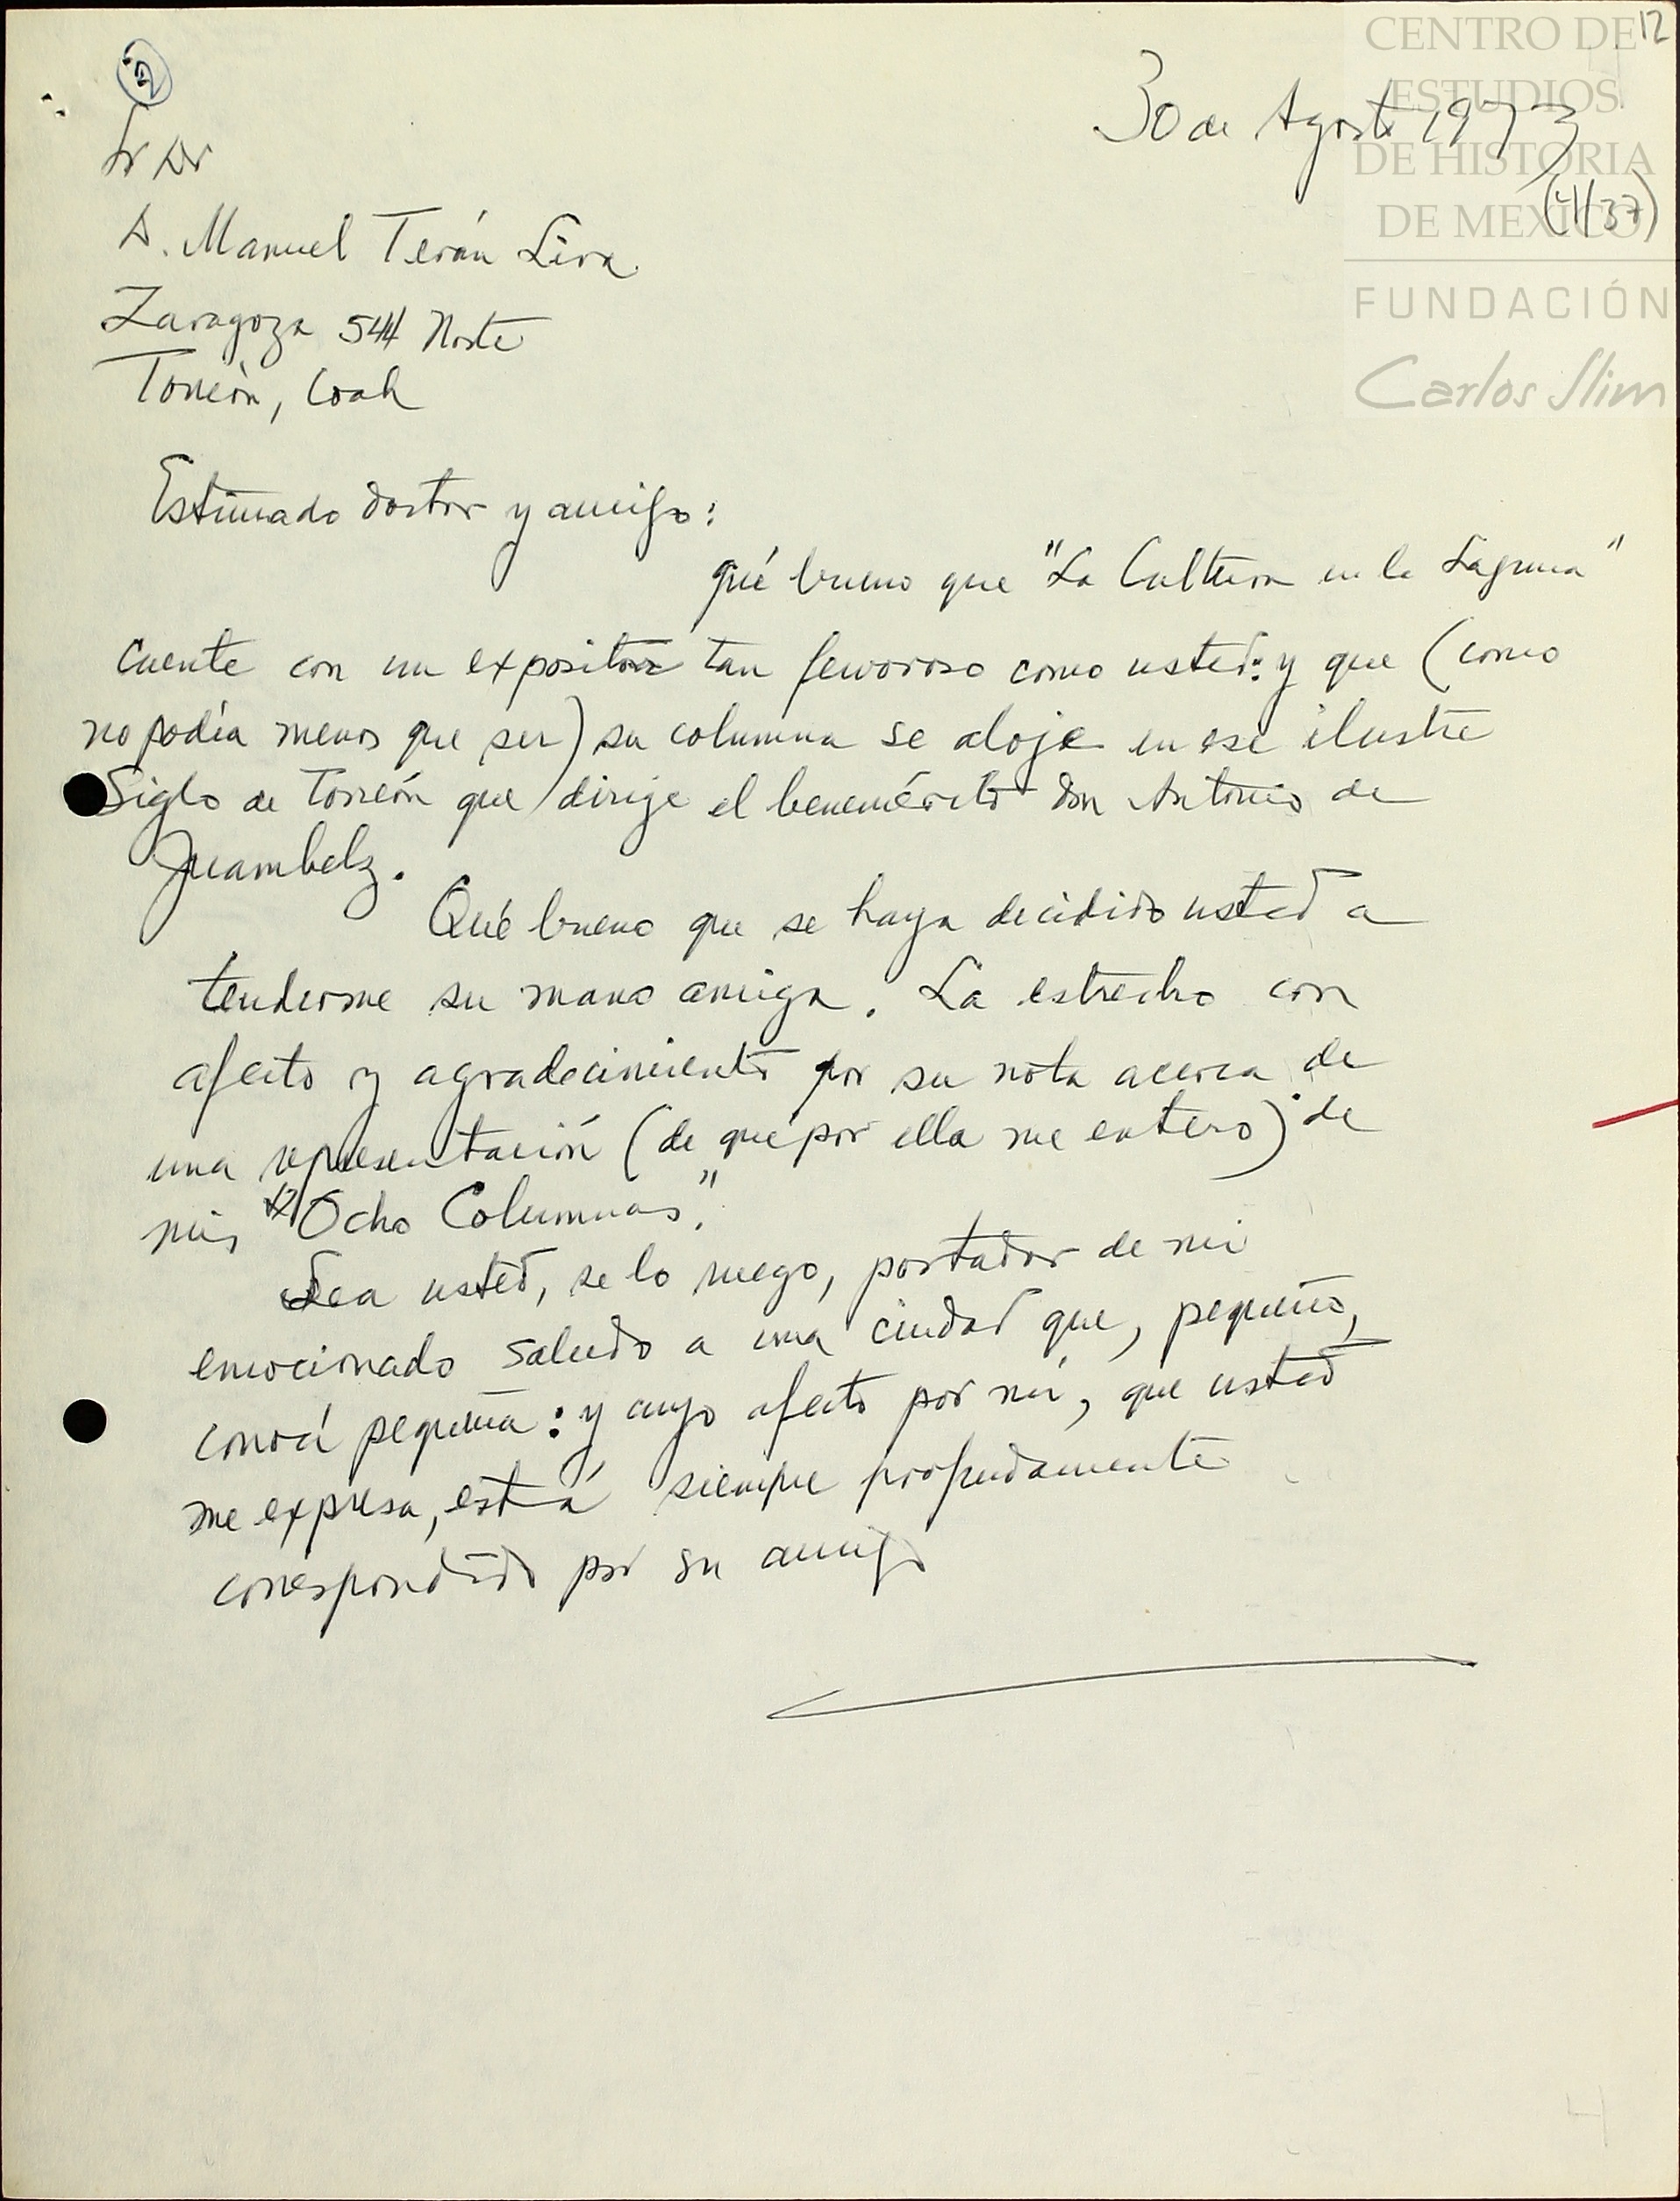 CENTRO DE
ESTUDIOS
DE HISTORIA
DE MEXICO
FUNDACIÓN
Carlos Slim
12
2
30 de Agosto 1973
(4/37)
Sr Dr
D. Manuel Terán Lira
Zaragoza 544 Norte
Torreón, Coah
Estimado doctor y amigo:
qué bueno que "La Cultura en la Laguna"
cuente con un expositor tan fervoroso como usted: y que (como
no podía menos que ser) su columna se aloje en ese ilustre
Siglo de Torreón que dirige el benemérito don Antonio de
Juambelz.
Qué bueno que se haya decidido usted a
tenderme su mano amiga. La estrecho con
afecto y agradecimiento por su nota acerca de
una representación (de que por ella me entero) de
mis "Ocho Columnas".
Sea usted, se lo ruego, portador de mi
emocionado saludo a una ciudad que, pequeño,
conocí pequeña: y cuyo afecto por mí, que usted
me expresa, está siempre profundamente
correspondido por su amigo
4